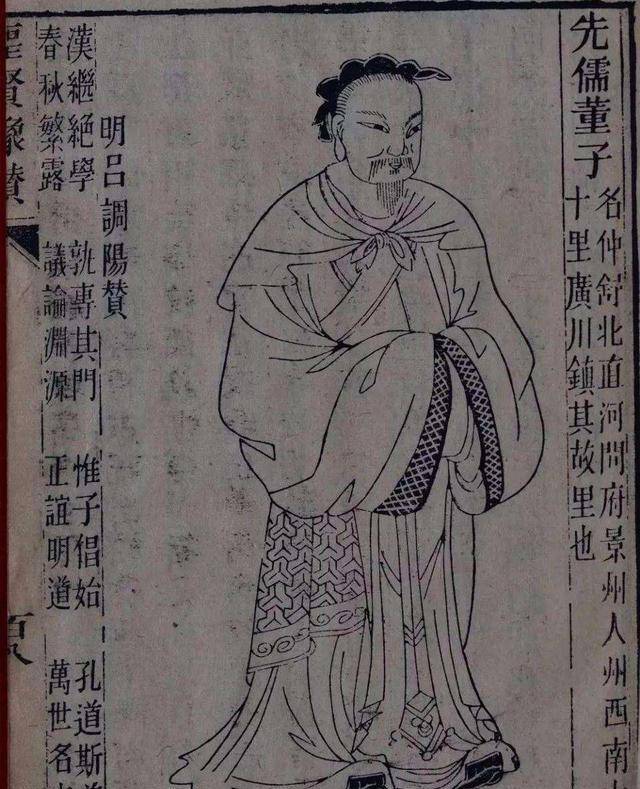 先儒董子
名仲舒北直河間府景州人州西南
十里廣川鎮其故里也
明呂調陽贊
漢繼絶學 孰專其門 惟子倡始 孔道斯
春秋繁露 議論淵源 正誼明道 萬世名
聖賢像贊
百八